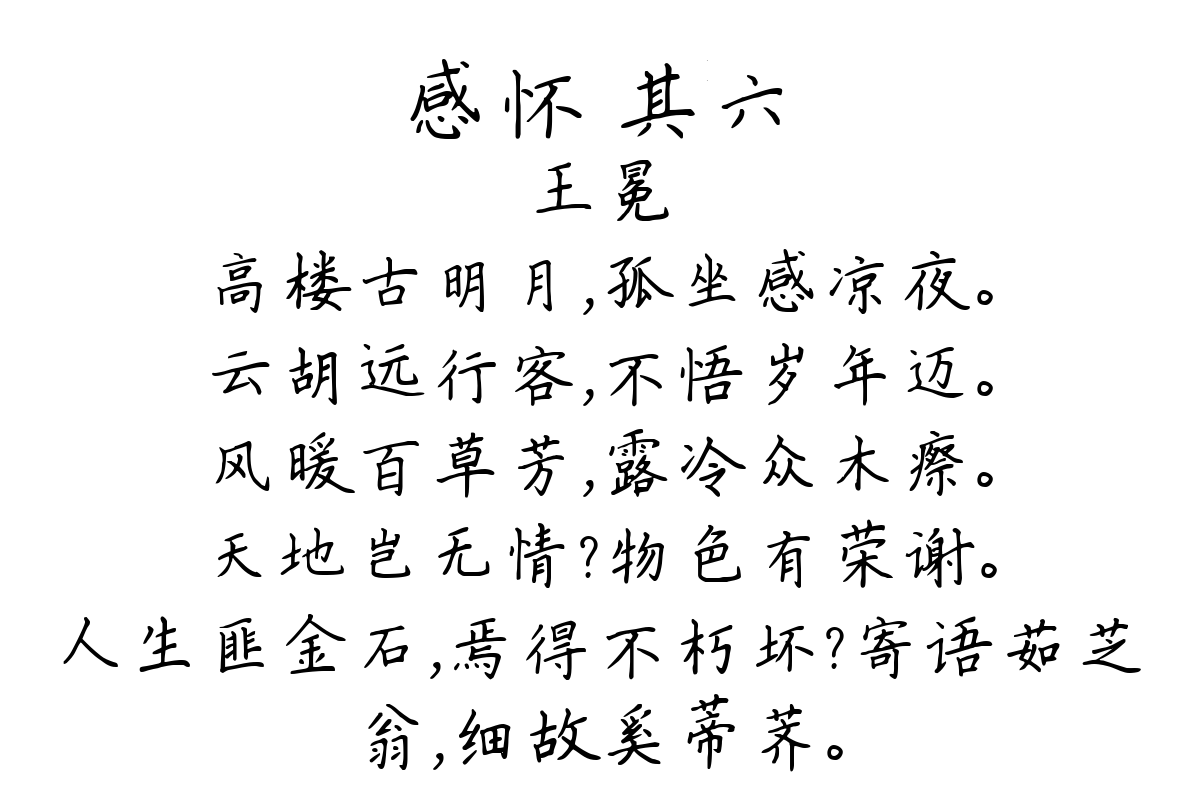 感怀 其六
王冕
高楼古明月,孤坐感凉夜。
云胡远行客,不悟岁年迈。
风暖百草芳,露冷众木瘵。
天地岂无情?物色有荣谢。
人生匪金石,焉得不朽坏?寄语茹芝
翁,细故奚蒂荞。